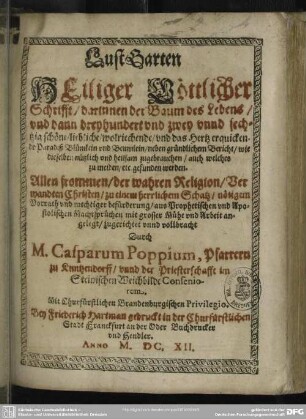 Lust Garten
Heiliger Göttlicher
Schrifft / darinnen der Baum des Lebens /
vnd dann dreyhundert vnd zwey vnnd sech-
zig schöne / liebliche / wolriechende / vnd das Hertz erquicken-
de Paradiß Blümlein vnd Beumlein / neben gründlichem Bericht / wie
dieselben nützlich vnd heilsam zugebrauchen / auch welches
zu meiden / etc. gefunden werden.
Allen frommen / der wahren Religion / Ver
wandten Christen / zu einem herrlichem Schatz / nötigem
Vorrath vnd mechtiger befürderung / aus Prophetischen vnd Apo-
stolischen Machtsprüchen mit grosser Mühe vnd Arbeit an-
gelegt / zugerichtet vnnd vollbracht
Durch
M. Casparum Poppium, Pfarrern
zu Kuntzendorff / vnnd der Priesterschafft im
Weichbilde Consenio-
rem.
Mit Churfürstlichen Brandenburgischen Privilegio.
Bey Friederich Hartman gedruckt in der Churfürstlichen
Stadt Franckfurt an der Oder Buchdrucker
vnd Hendler.
Anno M. DC. XII.